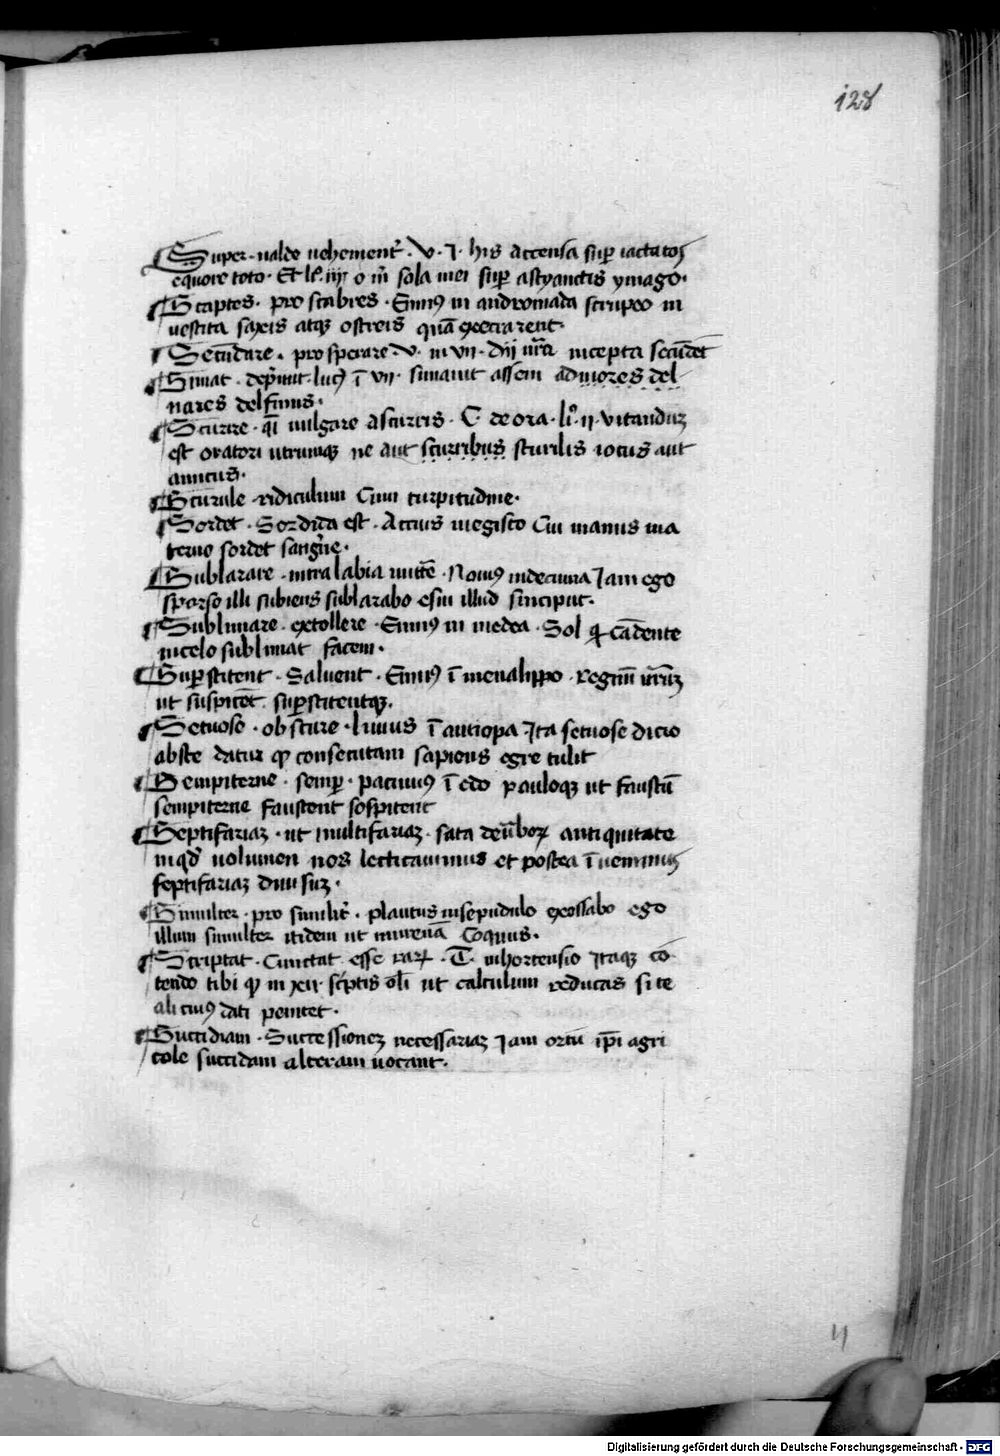 128
Super · ualde uehement᷑ · V · I · his accensa sup̱ iactatos
equore toto · Et lº. iiiº o m̅ sola mei sup̱ astyanctis ymago ·
Scaptes · pro scabres · Enniꝰ in andromada scrupeo in
uestita saxis atqꝫ ostreis quā excrarent ·
Secūdare · prosperare · V · in vii · dij nr̅a incepta secūdēt
Simat · dep̱mit · luciꝰ ī vii · simauit assem ad mores del
nares delfinus ·
Scurire · qī uulgare a scurris · C · de ora · liº · ii · vitanduꝫ
est oratori utrumqꝫ ne aut scurribus scurilis iocus aut
amicus ·
Scurule · ridiculum Cum turpitudine ·
Sordet · Sordida est · Accius megisto Cui manus ma
terno sordet sang̅ne ·
Sublarare · intra labia mitt̅e · Nouiꝰ in deciuna Iam ego
sporso illi subiens sublarabo esui illud sinciput ·
Sublimare · extollere · Enniꝰ in medea · Sol qͥ cādente
in celo sublimat facem ·
Sup̱stitent · Saluent · Enniꝰ ī menalippo · regnū ur̅mꝫ
ut suspicēt sup̱stitentqꝫ ·
Setuose · obscure · liuius ī antiopa · Ita setuose dicio
abste datur qͦ consecutam sapiens egre tulit
Sempiterne · semp̱ · pacuuiꝰ ī edo pauloqꝫ ut faustū
sempiterne faustent sospitent
Septifariaꝫ · ut multifariaꝫ · sata deū boꝝ antiquitate
inqd̅ uolumen nos lectitauimus et postea ī uenimus
septifariaꝫ diuisuꝫ ·
Simulter · pro similit᷑ · plautus in sepudulo exossabo ego
illum simulter itidem ut murenā Coquus ·
Scriptat · Cunctat esse raꝝ · T · in hortensio Itaqꝫ cō
tendo tibi qͦ in xii · sc̅ptis oli̅ ut calculum reducas si te
alicuiꝰ dati penitet ·
Succidiam · Successioneꝫ necessariaꝫ Iam ortū ip̅i agri
cole succidam alteram uocant ·
Digitalisierung gefördert durch die Deutsche Forschungsgemeinschaft · DFG